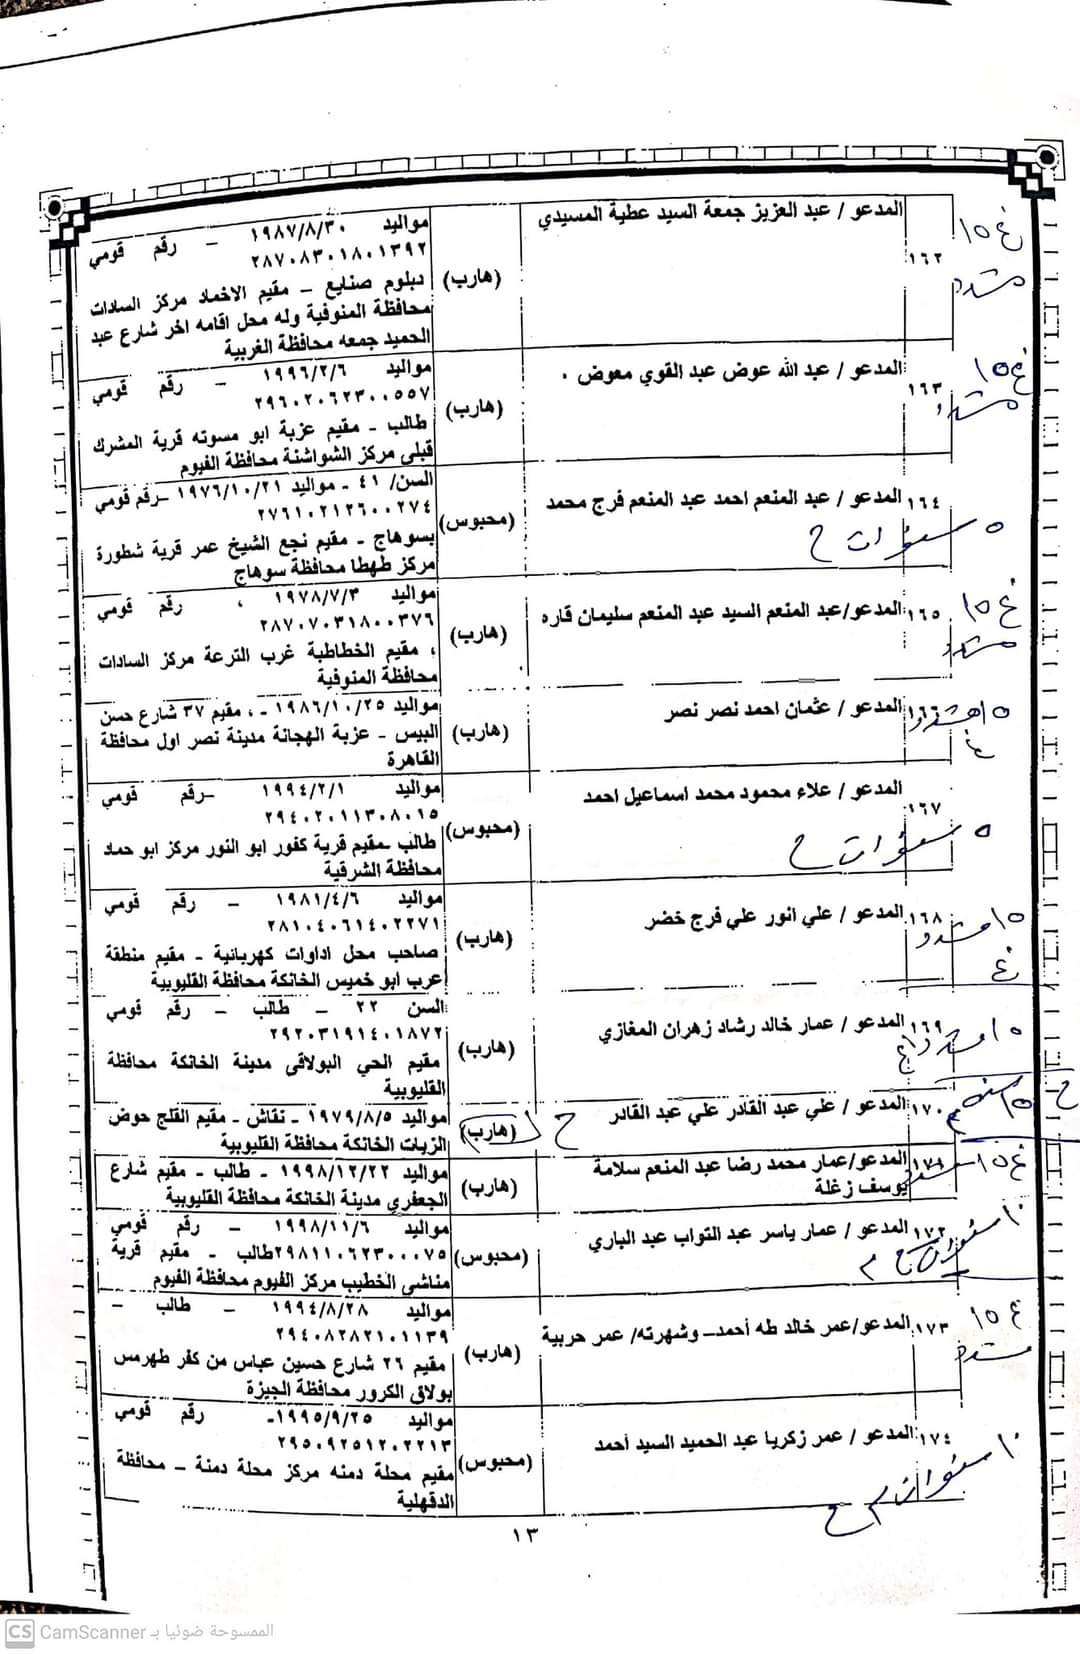 ١٦٢
المدعو / عبد العزيز جمعة السيد عطية المسيدي
(هارب)
مواليد ١٩٨٧/٨/٣٠ – رقم قومي
٢٨٧٠٨٣٠١٨٠١٣٩٢
دبلوم صنايع – مقيم الاخماد مركز السادات
محافظة المنوفية وله محل اقامه اخر شارع عبد
الحميد جمعه محافظة الغربية
١٥ غ
مشدد
١٦٣
المدعو / عبد الله عوض عبد القوي معوض .
(هارب)
مواليد ١٩٩٦/٢/٦ – رقم قومي
٢٩٦٠٢٠٦٢٣٠٠٥٥٧
طالب – مقيم عزبة ابو مسوته قرية المشرك
قبلي مركز الشواشنة محافظة الفيوم
١٥ غ
مشدد
١٦٤
المدعو / عبد المنعم احمد عبد المنعم فرج محمد
(محبوس)
السن/ ٤١ - مواليد ١٩٧٦/١٠/٢١ –رقم قومي
٢٧٦١٠٢١٢٦٠٠٢٧٤
بسوهاج – مقيم نجع الشيخ عمر قرية شطورة
مركز طهطا محافظة سوهاج
٥ سنوات ح
١٦٥
المدعو/عبد المنعم السيد عبد المنعم سليمان قاره
(هارب)
مواليد ١٩٧٨/٧/٣ ، رقم قومي
٢٨٧٠٧٠٣١٨٠٠٣٧٦
، مقيم الخطاطبة غرب الترعة مركز السادات
محافظة المنوفية
١٥ غ
مشدد
١٦٦
المدعو / عثمان احمد نصر نصر
(هارب)
مواليد ١٩٨٦/١٠/٢٥ – ، مقيم ٣٧ شارع حسن
البيس – عزبة الهجانة مدينة نصر اول محافظة
القاهرة
١٥ مشدد
١٦٧
المدعو / علاء محمود محمد اسماعيل احمد
(محبوس)
مواليد ١٩٩٤/٢/١ –رقم قومي
٢٩٤٠٢٠١١٣٠٨٠١٥
طالب –مقيم قرية كفور ابو النور مركز ابو حماد
محافظة الشرقية
٥ سنوات ح
١٦٨
المدعو / علي انور علي فرج خضر
(هارب)
مواليد ١٩٨١/٤/٦ – رقم قومي
٢٨١٠٤٠٦١٤٠٢٢٧١
صاحب محل اداوات كهربائية – مقيم منطقة
عرب ابو خميس الخانكة محافظة القليوبية
١٥ مشدد
غ
١٦٩
المدعو / عمار خالد رشاد زهران المغازي
(هارب)
السن ٢٢ – طالب – رقم قومي
٢٩٢٠٣١٩١٤٠١٨٧٢
مقيم الحي البولاقي مدينة الخانكة محافظة
القليوبية
١٥ مشدد غ
١٧٠
المدعو / علي عبد القادر علي عبد القادر
(هارب)
مواليد ١٩٧٩/٨/٥ – نقاش – مقيم القلج حوض
الزيات الخانكة محافظة القليوبية
ح
١٥ سنة
ح
١٧١
المدعو/عمار محمد رضا عبد المنعم سلامة
يوسف زغلة
(هارب)
مواليد ١٩٩٨/١٢/٢٢ – طالب – مقيم شارع
الجعفري مدينة الخانكة محافظة القليوبية
١٥ غ
١٧٢
المدعو / عمار ياسر عبد التواب عبد الباري
(محبوس)
مواليد ١٩٩٨/١١/٦ – رقم قومي
٢٩٨١١٠٦٢٣٠٠٠٧٥طالب – مقيم قرية
مناشى الخطيب مركز الفيوم محافظة الفيوم
١٠ سنوات ح م
١٧٣
المدعو/عمر خالد طه أحمد– وشهرته/ عمر حربية
(هارب)
مواليد ١٩٩٤/٨/٢٨ – طالب –
٢٩٤٠٨٢٨٢١٠١١٣٩
مقيم ٢٦ شارع حسين عباس من كفر طهرمس
بولاق الكرور محافظة الجيزة
١٥ غ
مشدد
١٧٤
المدعو / عمر زكريا عبد الحميد السيد أحمد
(محبوس)
مواليد ١٩٩٥/٩/٢٥– رقم قومي
٢٩٥٠٩٢٥١٢٠٢٢١٣
مقيم محلة دمنه مركز محلة دمنة – محافظة
الدقهلية
١٠ سنوات م ح
١٣
CS CamScanner الممسوحة ضوئيا بـ